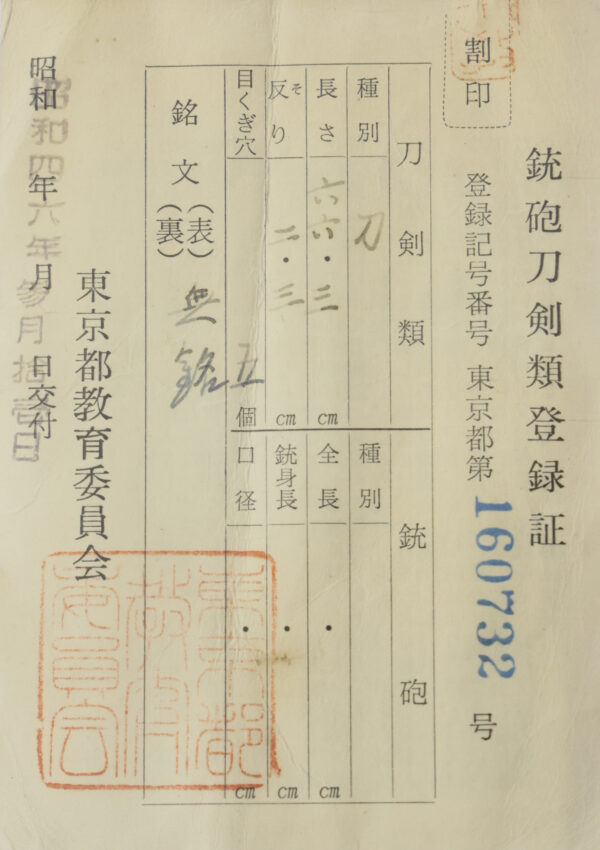 銃砲刀剣類登録証
割印
登録記号番号 東京都第 160732 号
刀剣類 銃砲
種別 刀
長さ 六六・三 cm
反り そ 二・三 cm
目くぎ穴 五 個
種別
全長 ・ cm
銃身長 ・ cm
口径 ・ cm
銘文 (表) (裏) 無銘
東京都教育委員会
昭和 年 月 日交付
昭和四六年参月拾壱日
東京都
教育
委員会